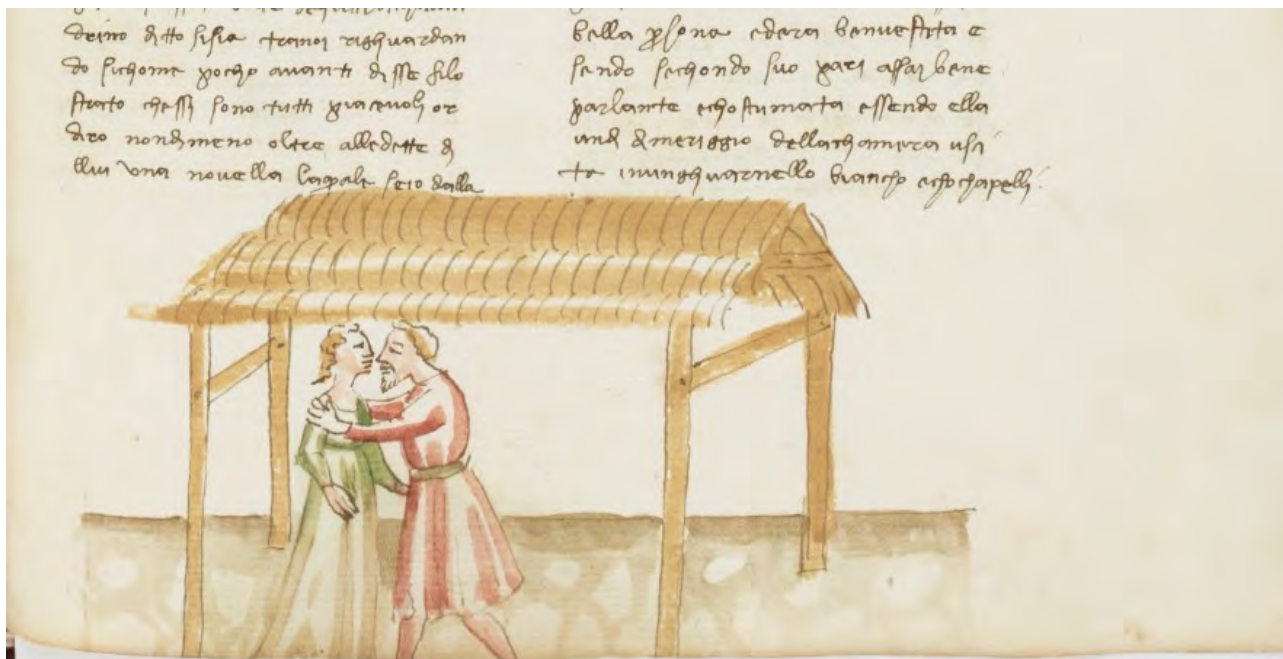 drino ditto sisia tranoi righuardan
do sichome pocho avanti disse filo
strato chessi sono tutti piacevoli or
diro nondimeno oltre alledette di
llui una novella laquale seio dalla
bella ꝑsona edera benvestita e
sendo sechondo suo pari assai bene
parlante echostumata essendo ella
undi dimeriggio dellachamera usi
ta inunghuarnello biancho echochapelli